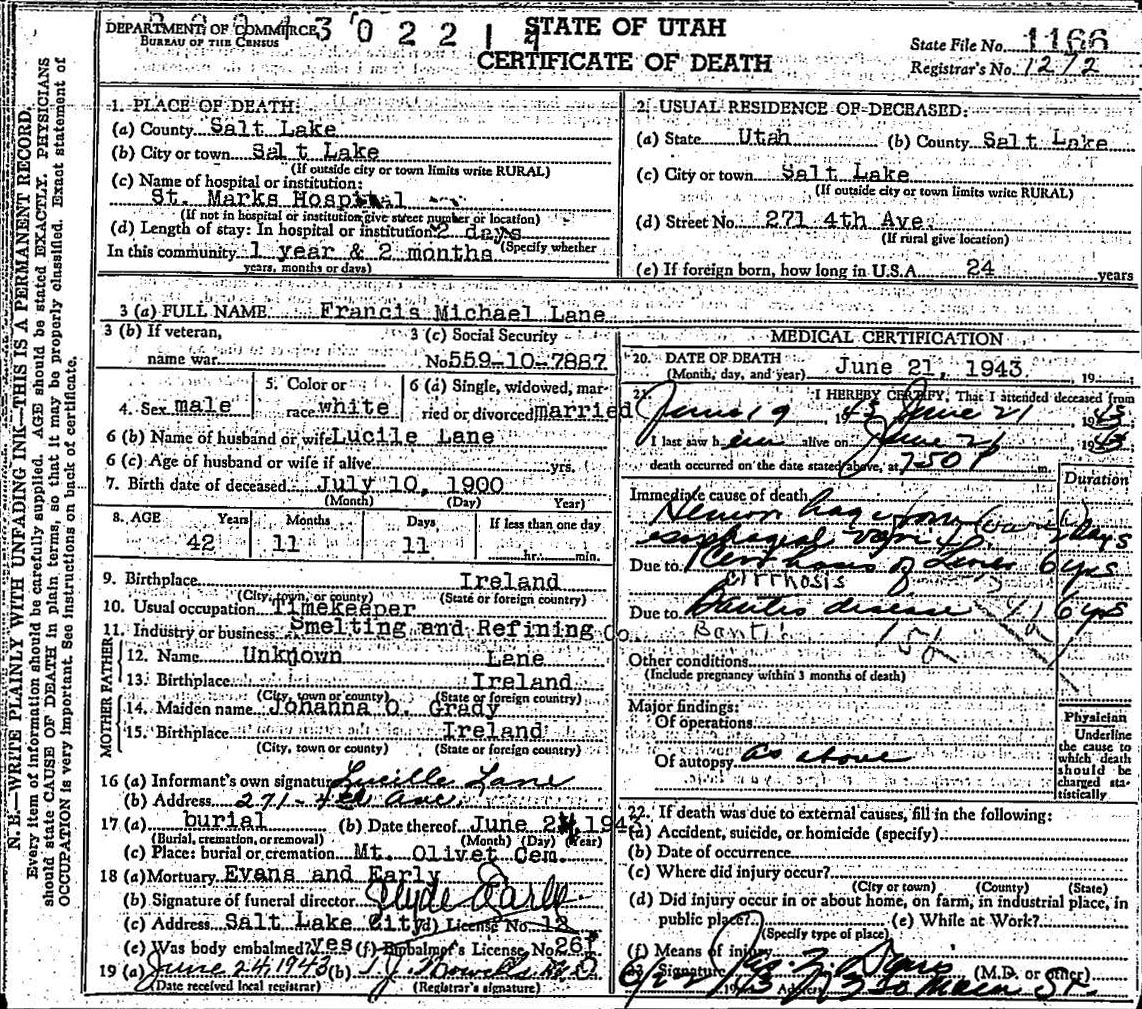 DEPARTMENT OF COMMERCE
BUREAU OF THE CENSUS
3 0 2 2 1
STATE OF UTAH
CERTIFICATE OF DEATH
State File No. 1166
Registrar's No. 1212
N. B.—WRITE PLAINLY WITH UNFADING INK—THIS IS A PERMANENT RECORD.
Every item of information should be carefully supplied. AGE should be stated EXACTLY. PHYSICIANS
should state CAUSE OF DEATH in plain terms, so that it may be properly classified. Exact statement of
OCCUPATION is very important. See instructions on back of certificate.
1. PLACE OF DEATH:
(a) County Salt Lake
(b) City or town Salt Lake
(If outside city or town limits write RURAL)
(c) Name of hospital or institution:
St. Marks Hospital
(If not in hospital or institution give street number or location)
(d) Length of stay: In hospital or institution 2 days
(Specify whether
In this community 1 year & 2 months
years, months or days)
2. USUAL RESIDENCE OF DECEASED:
(a) State Utah (b) County Salt Lake
(c) City or town Salt Lake
(If outside city or town limits write RURAL)
(d) Street No. 271 4th Ave.
(If rural give location)
(e) If foreign born, how long in U.S.A. 24 years
3 (a) FULL NAME Francis Michael Lane
3 (b) If veteran, 3 (c) Social Security
name war No. 559-10-7887
4. Sex male 5. Color or race white 6 (a) Single, widowed, married or divorced married
6 (b) Name of husband or wife Lucile Lane
6 (c) Age of husband or wife if alive yrs.
7. Birth date of deceased July 10, 1900
(Month) (Day) Year)
8. AGE Years Months Days If less than one day
42 11 11 hr. min.
9. Birthplace Ireland
(City, town, or county) (State or foreign country)
10. Usual occupation Timekeeper
11. Industry or business Smelting and Refining Co.
FATHER
12. Name Unknown Lane
13. Birthplace Ireland
(City, town or county) (State or foreign country)
MOTHER
14. Maiden name Johanna O. Grady
15. Birthplace Ireland
(City, town or county) (State or foreign country)
16 (a) Informant's own signature Lucille Lane
(b) Address 271-4th Ave.
17 (a) burial (b) Date thereof June 24, 194
(Burial, cremation, or removal) (Month) (Day) (Year)
(c) Place: burial or cremation Mt. Olivet Cem.
18 (a) Mortuary Evans and Early
(b) Signature of funeral director Clyde Early
(c) Address Salt Lake City (d) License No. 12
(e) Was body embalmed? yes (f) Embalmer's License No. 261
19 (a) June 24, 1943 (b)
(Date received local registrar) (Registrar's signature)
MEDICAL CERTIFICATION
20. DATE OF DEATH
(Month, day, and year) June 21, 1943 19
21. I HEREBY CERTIFY, That I attended deceased from
June 19 1943 June 21 1943
I last saw him alive on June 21 1943
death occurred on the date stated above, at 7:50 P m.
Duration
Immediate cause of death
Hemorrhage from
esophageal 2 days
Due to of Liver 6 yrs
cirrhosis
Due to Bantis disease 6 yrs
Banti
Other conditions
(Include pregnancy within 3 months of death)
Major findings:
Of operations
Of autopsy as above
Physician
Underline
the cause to
which death
should be
charged sta-
tistically.
22. If death was due to external causes, fill in the following:
(a) Accident, suicide, or homicide (specify)
(b) Date of occurrence
(c) Where did injury occur?
(City or town) (County) (State)
(d) Did injury occur in or about home, on farm, in industrial place, in
public place? (e) While at Work?
(Specify type of place)
(f) Means of injury
23. Signature (M.D. or other)
6/22/43 Address So Main St.